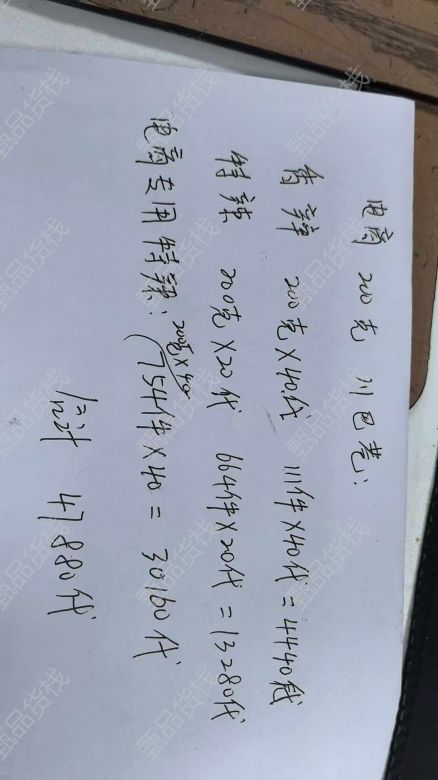 电商 200克 川巴巷:
香辣 200克×40代 111件×40代=4440代
特辣 200克×20代 664件×20代=13280代
电商专用特辣: (200克×40 754件×40=30160代
位计 47880代
甄品货栈